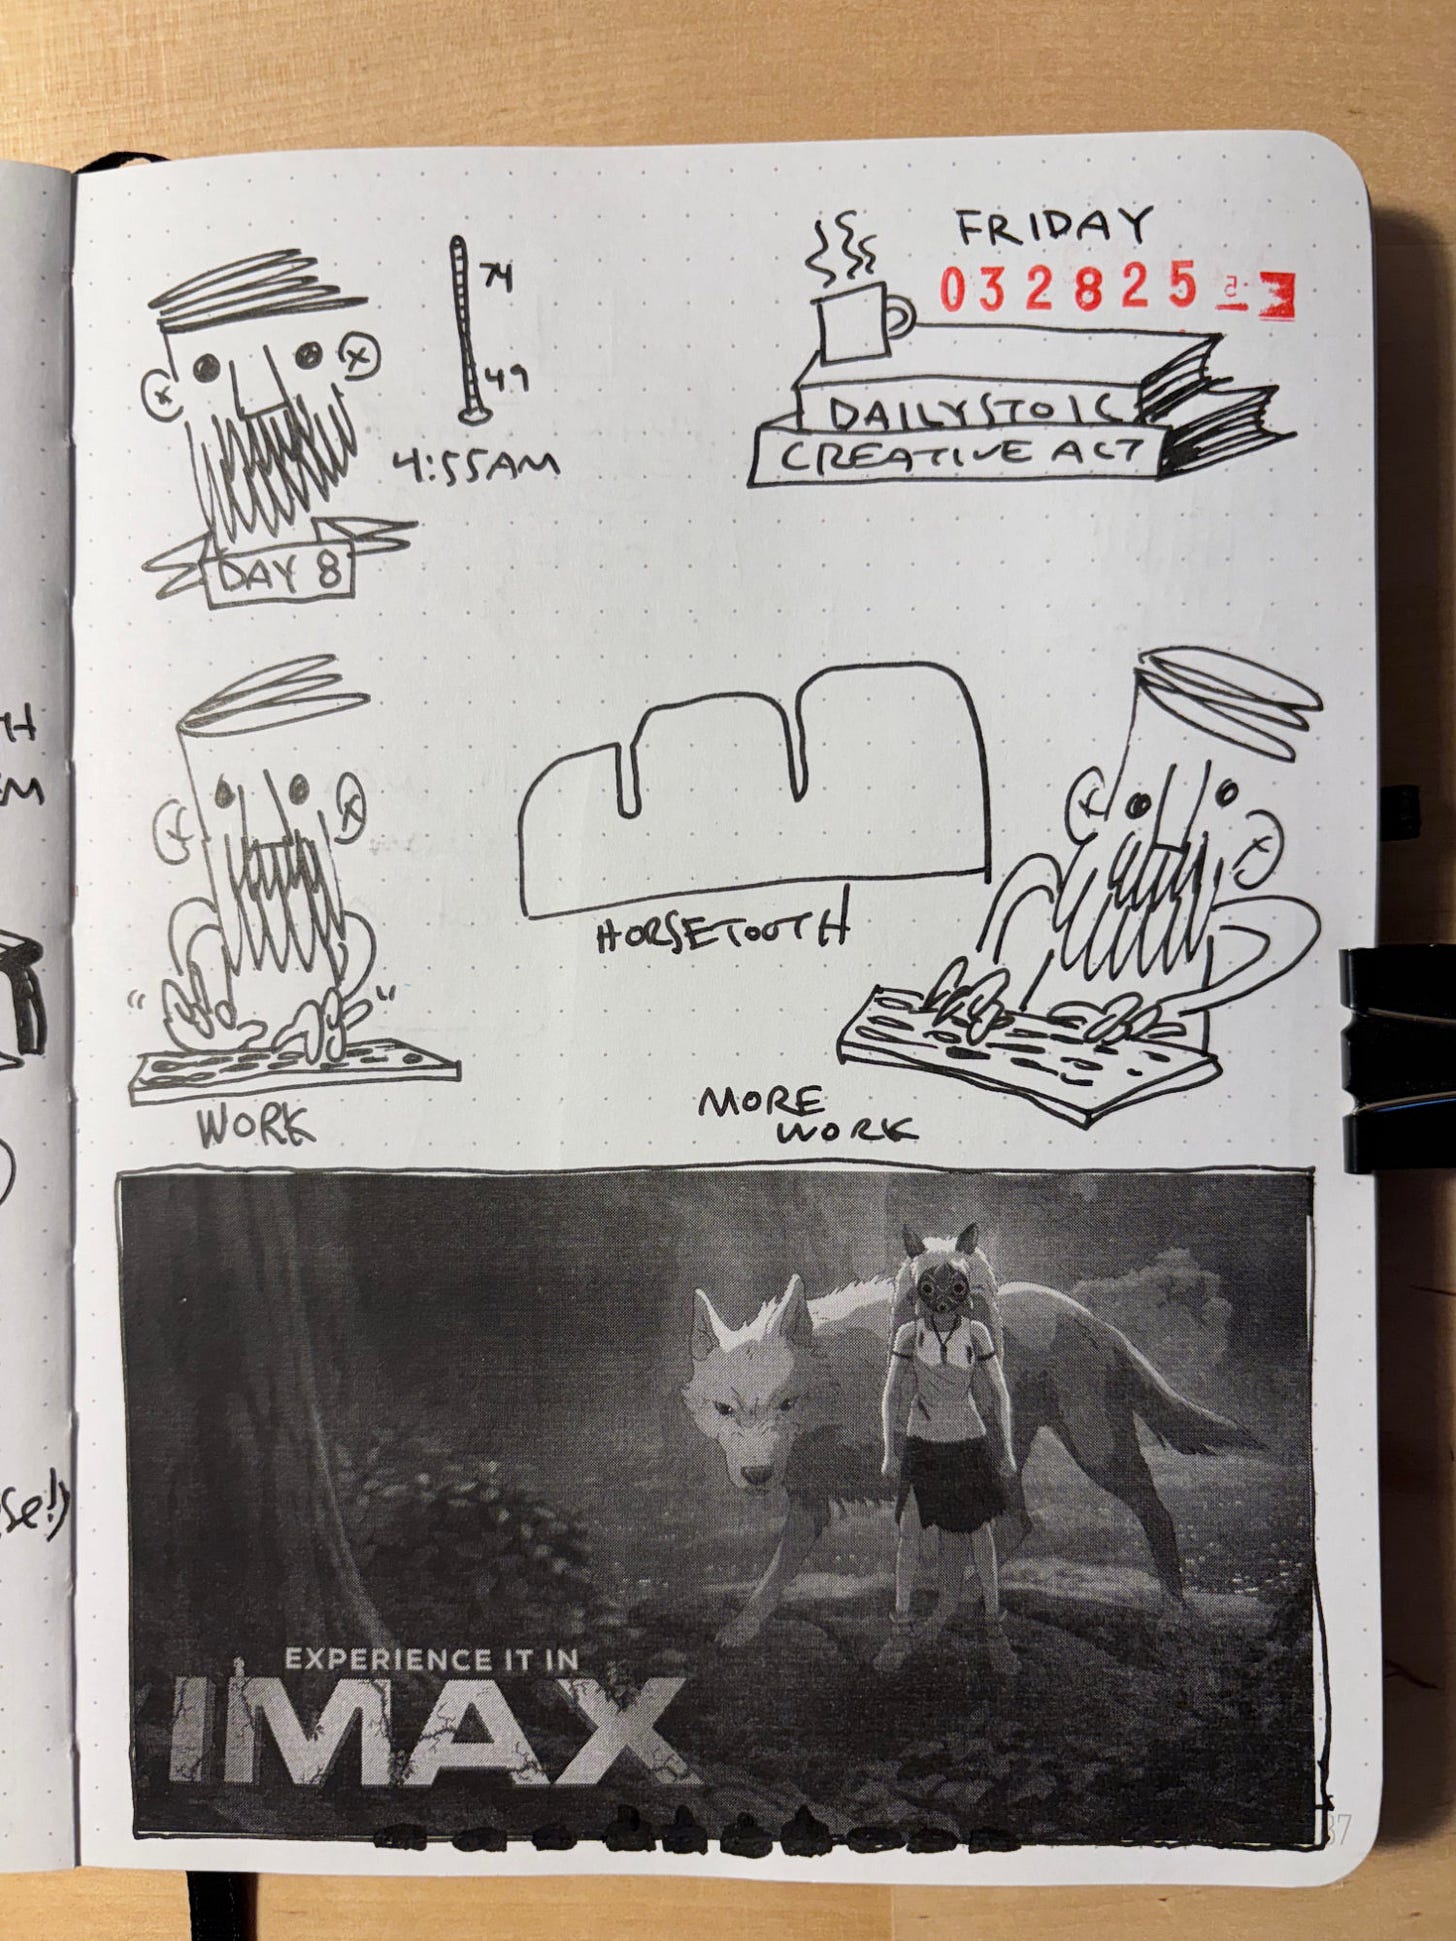 FRIDAY
032825
74
49
4:55AM
DAILY STOIC
CREATIVE ACT
DAY 8
HORSETOOTH
WORK
MORE
WORK
EXPERIENCE IT IN
IMAX
37